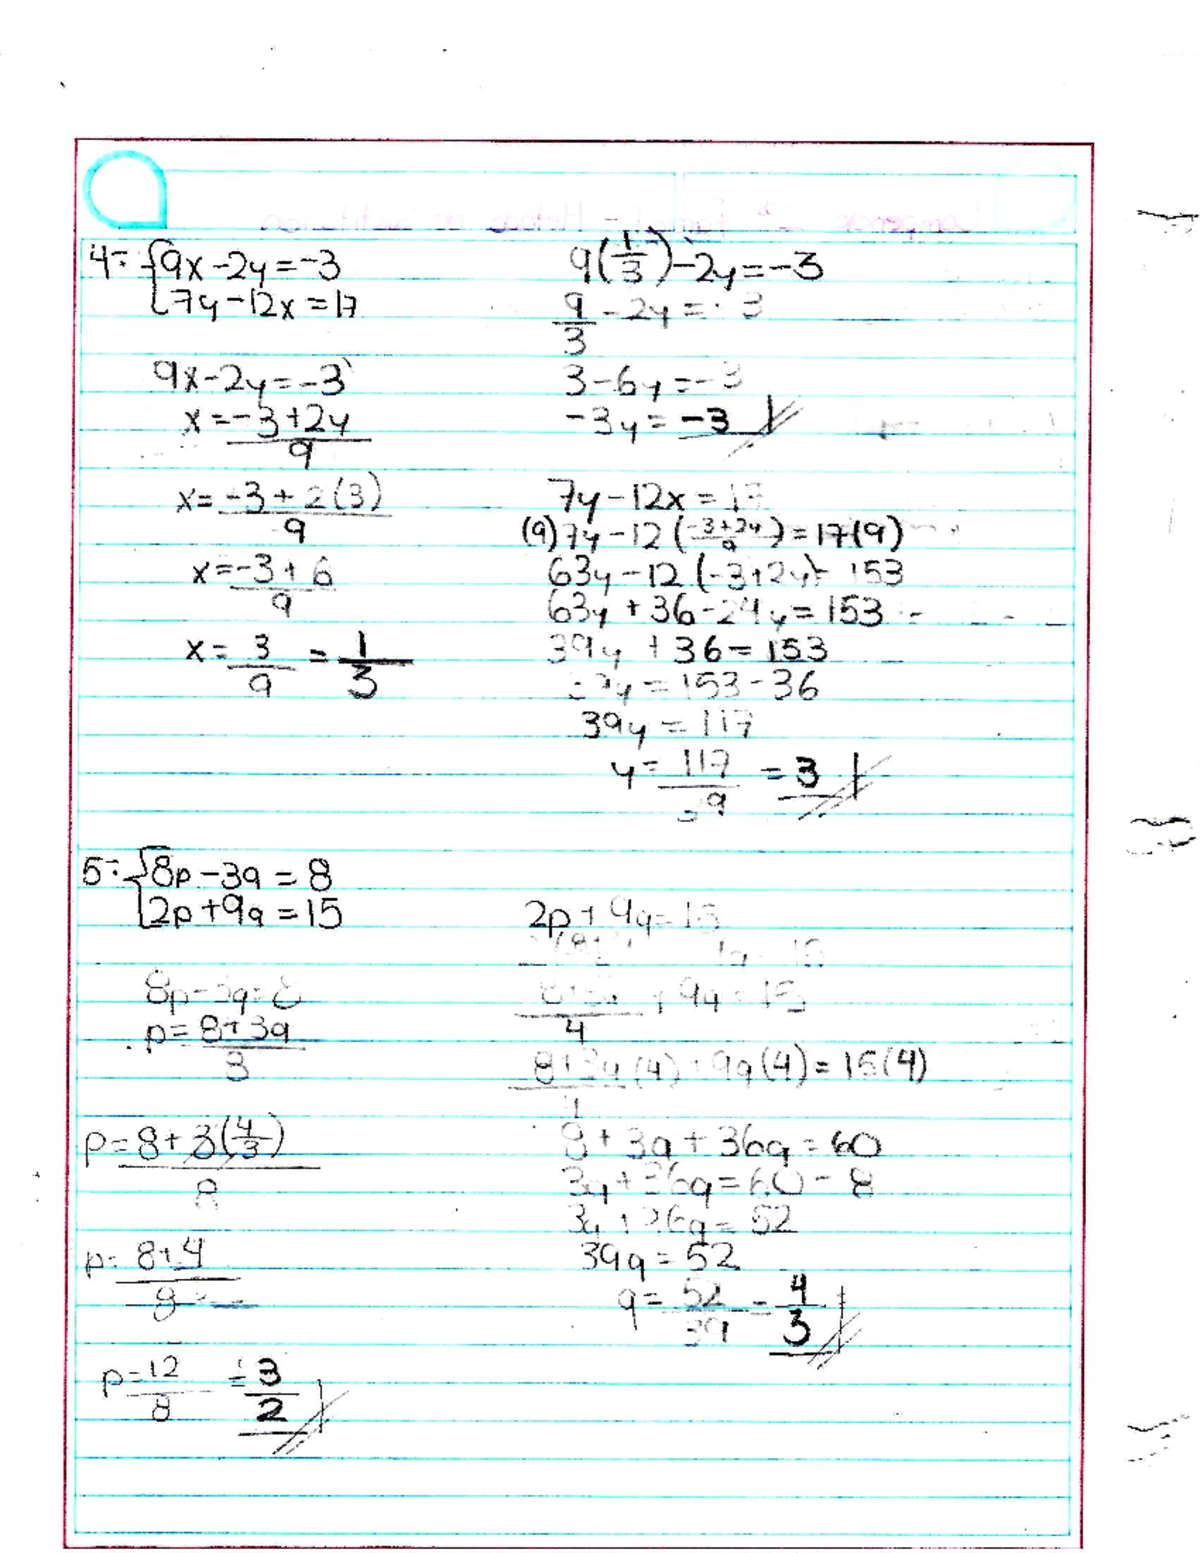 4- 9x-2y=-3
7y-12x=17
9x-2y=-3
x=-3+2y
9
x=-3+2(3)
9
x=-3+6
9
x=3=1
9 3
9(1/3)-2y=-3
9/3-2y=-3
3-6y=-3
-3y=-3
7y-12x=17
(9)7y-12(-3+2y/9)=17(9)
63y-12(-3+2y)=153
63y+36-24y=153
39y+36=153
y=153-36
39y=117
y=117=3
9
5- 8p-3q=8
2p+9q=15
8p-3q=8
p=8+3q
3
p=8+3(4/3)
8
p=8+4
8
p=12=3
8 2
2p+9q=15
+9q=15
4
8+3q(4)+9q(4)=15(4)
8+3q+36q=60
3q+36q=60-8
3q+36q=52
39q=52
q=52=4
39 3